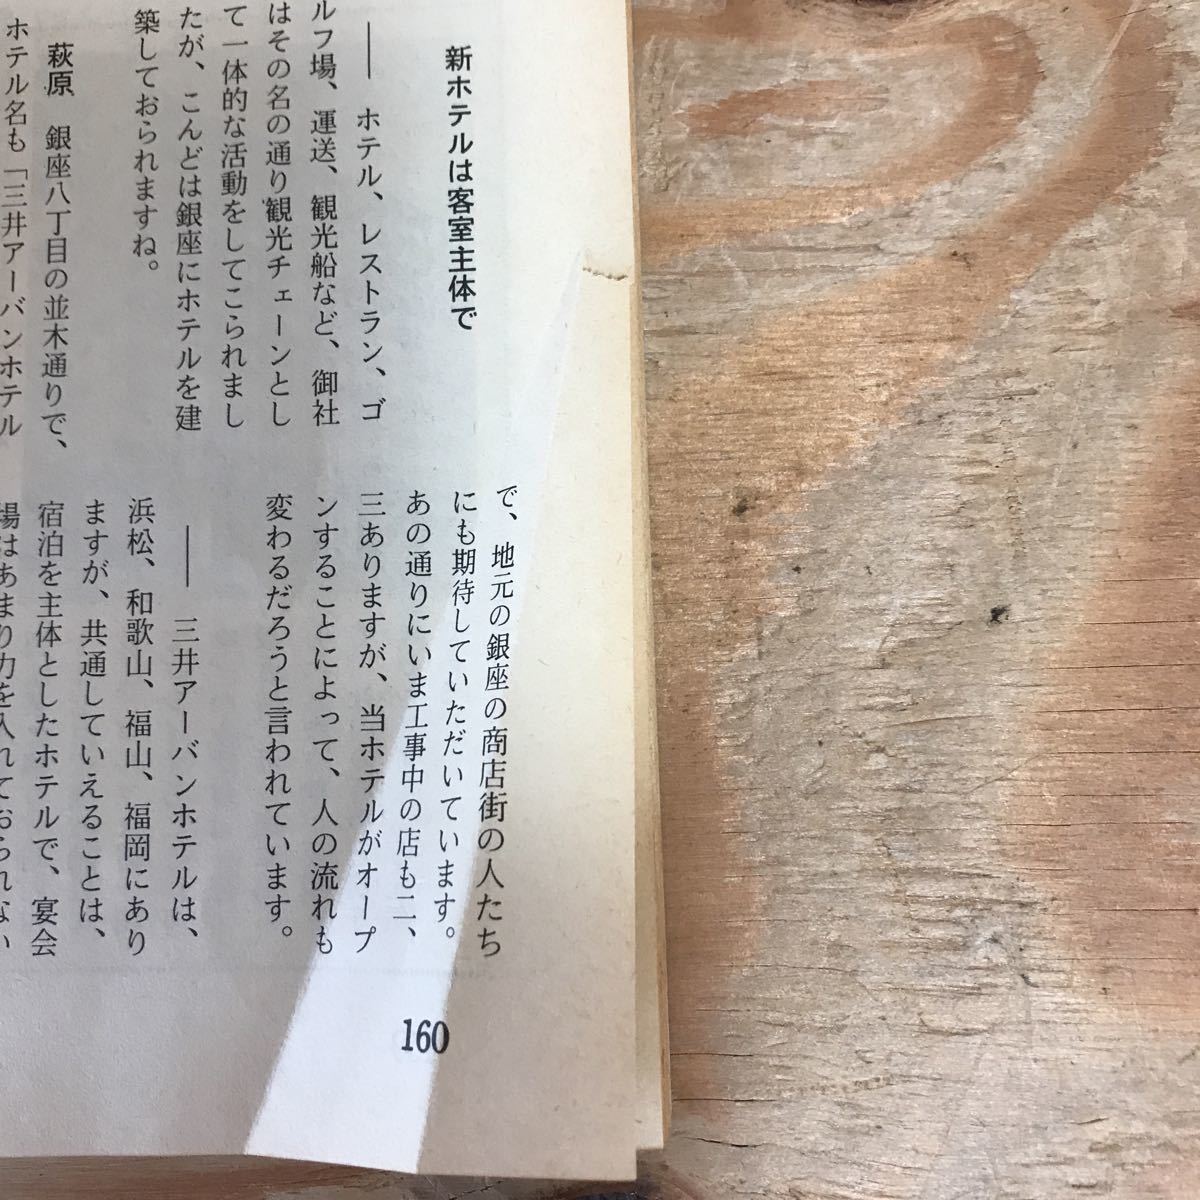 新ホテルは客室主体で
―― ホテル、レストラン、ゴ
ルフ場、運送、観光船など、御社
はその名の通り観光チェーンとし
て一体的な活動をしてこられまし
たが、こんどは銀座にホテルを建
築しておられますね。
萩原 銀座八丁目の並木通りで、
ホテル名も「三井アーバンホテル
で、地元の銀座の商店街の人たち
にも期待していただいています。
あの通りにいま工事中の店も二、
三ありますが、当ホテルがオープ
ンすることによって、人の流れも
変わるだろうと言われています。
―― 三井アーバンホテルは、
浜松、和歌山、福山、福岡にあり
ますが、共通していえることは、
宿泊を主体としたホテルで、宴会
場はあまり力を入れておられない
160